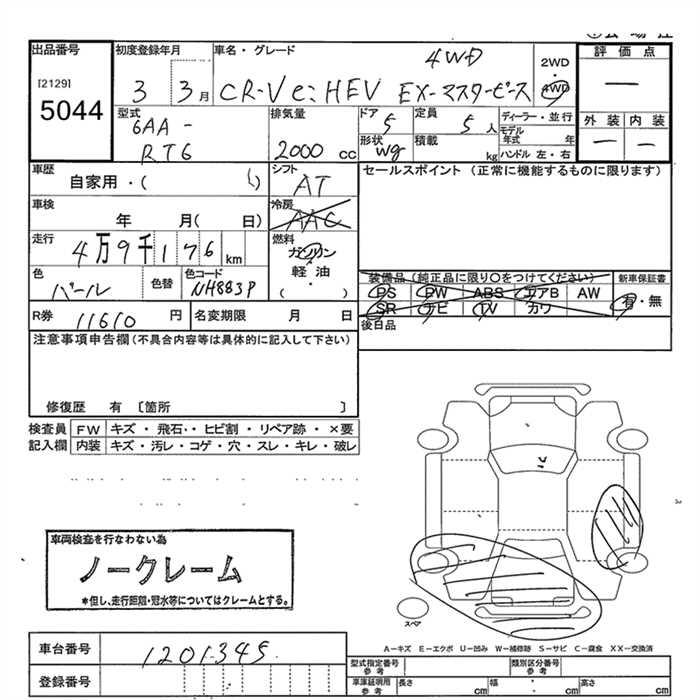 出品番号
[2129]
5044
初度登録年月
3 3月
車名・グレード
4WD
CR-V e:HEV EX-マスターピース
2WD
・
4WD
評価点
―
外装 内装
― ―
型式
6AA-
RT6
排気量
2000 cc
ドア
5
定員
5人
ディーラー・並行
モデル年式 年
形状
Wg
積載
kg
ハンドル 左・右
車歴
自家用・( )
シフト
AT
セールスポイント (正常に機能するものに限ります)
車検
年 月( 日)
冷房
AAC
走行
4万9千176km
燃料
ガソリン
・
軽油
( )
色
パール
色替
色コード
NH883P
装備品 (純正品に限り○をつけてください)
PS PW ABS エアB AW
SR ナビ TV カワ
新車保証書
有・無
R券 11610 円
名変期限 月 日
後日品
注意事項申告欄(不具合内容等は具体的に記入して下さい)
修復歴 有 〔箇所 〕
検査員 FW キズ・飛石・ヒビ割・リペア跡・×要
記入欄 内装 キズ・汚レ・コゲ・穴・スレ・キレ・破レ
車両検査を行なわない為
ノークレーム
*但し、走行距離・冠水等についてはクレームとする。
スペア
A−キズ E−エクボ U−凹み W−補修跡 S−サビ C−腐食 XX−交換済
車台番号 1201349
登録番号
型式指定番号
参考
類別区分番号
参考
車庫証明用
参考
長さ cm 幅 cm 高さ cm